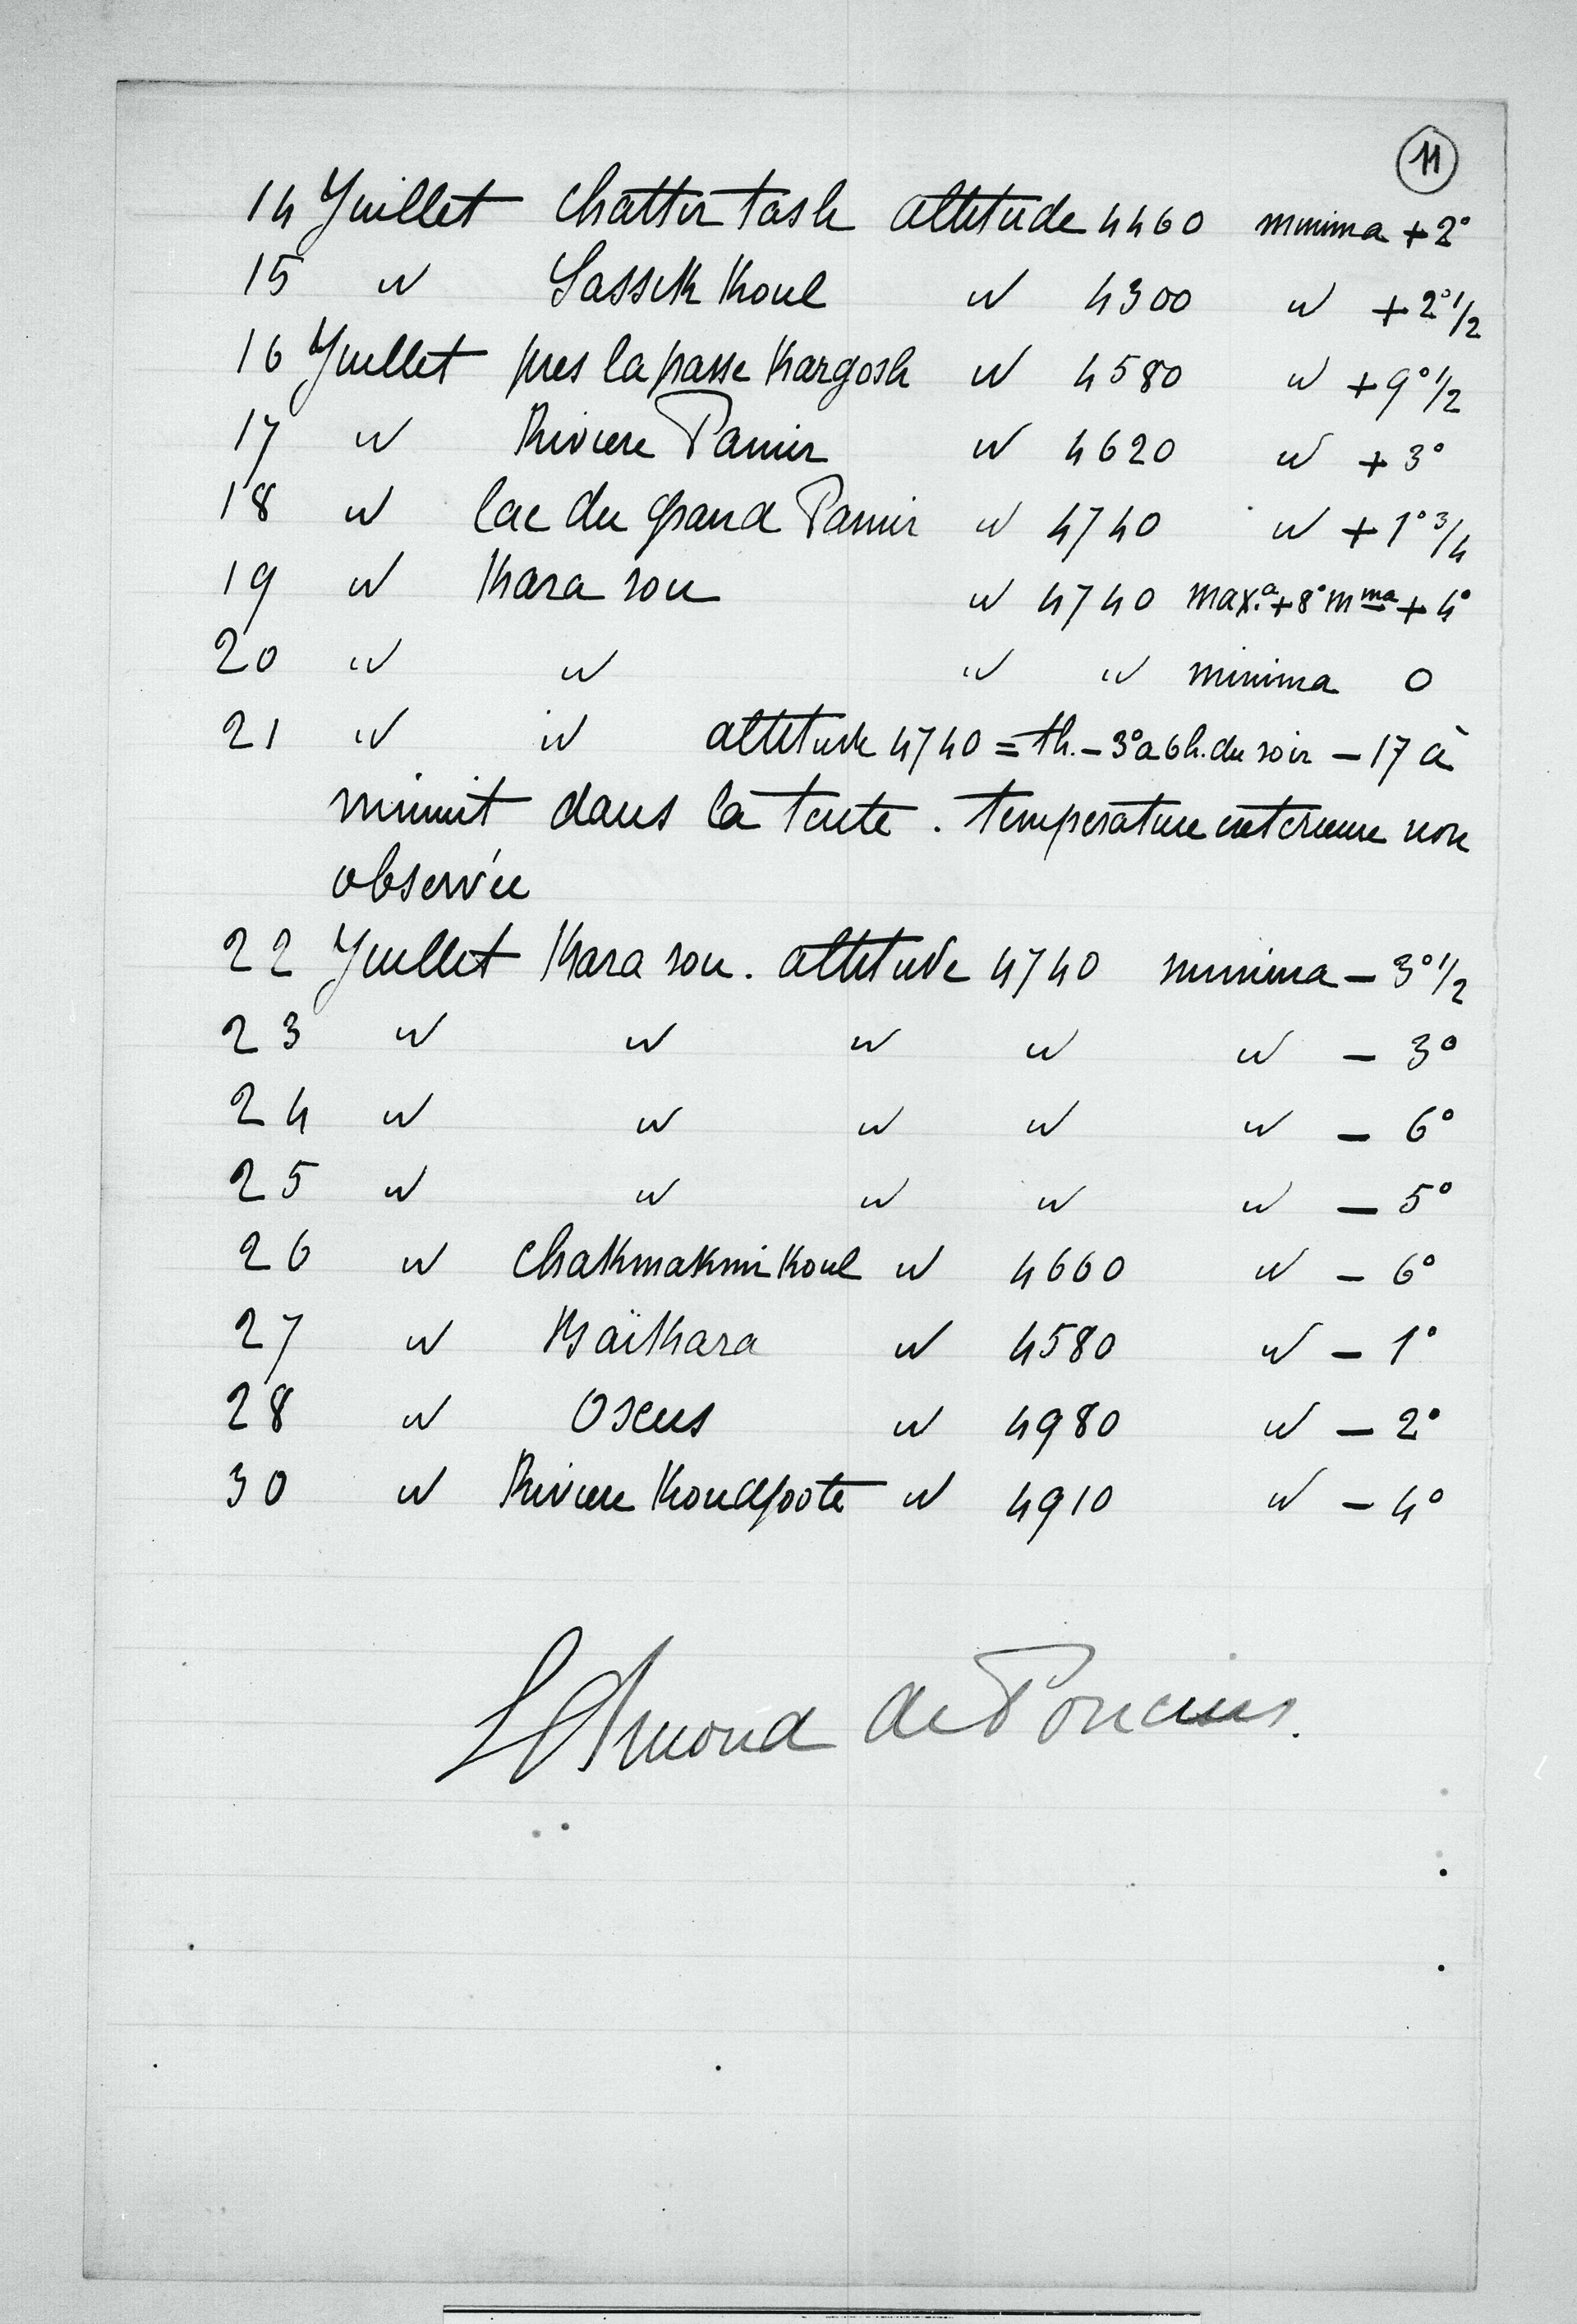 11
14 Juillet Chattir Tash altitude 4460 minima + 2°
15 " Sassik Koul " 4300 " + 2°1/2
16 Juillet pres la passe Kargosh " 4580 " + 9°1/2
17 " Riviere Pamir " 4620 " + 3°
18 " lac du grand Pamir " 4740 " + 1°3/4
19 " Kara sou " 4740 max.a + 8° mma + 4°
20 " " " " minima 0
21 " " altitude 4740 = th. - 3° a 6h. du soir - 17 à
minuit dans la tente. temperature exterieure non
observée
22 Juillet Kara sou. altitude 4740 minima - 3°1/2
23 " " " " " - 3°
24 " " " " " - 6°
25 " " " " " - 5°
26 " Chakmakmi Koul " 4660 " - 6°
27 " Kaïkara " 4580 " - 1°
28 " Oxus " 4980 " - 2°
30 " Riviere " 4910 " - 4°
de Poncins.